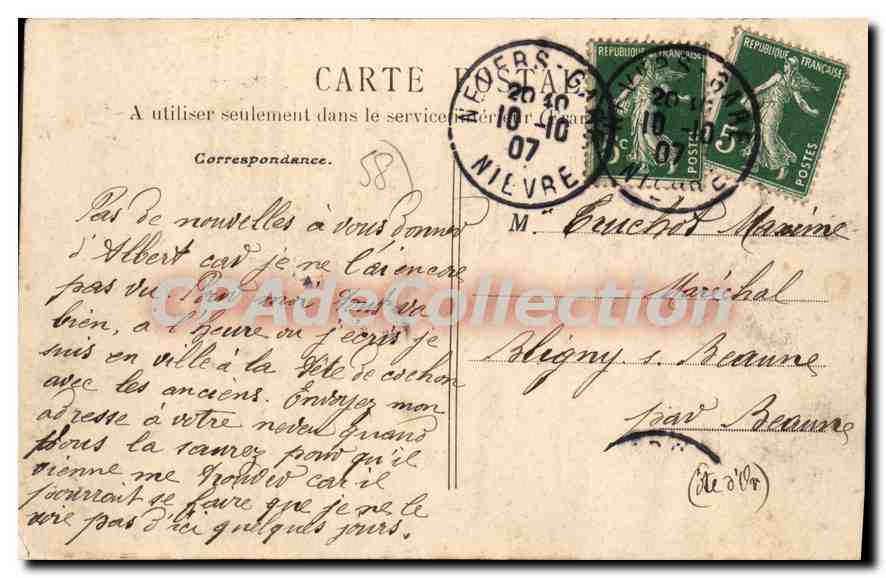 CARTE POSTALE
A utiliser seulement dans le service intérieur (France
Correspondance.
58)
NEVERS-GARE
20 40
10 -10
07
NIEVRE
NEVERS-GARE
20 40
10 -10
07
NIEVRE
REPUBLIQUE FRANÇAISE
5c
POSTES
REPUBLIQUE FRANÇAISE
5
POSTES
Pas de nouvelles à vous donner
d'Albert car je ne l'ai encore
pas vu. Pour moi tout va
bien, a l'heure ou j'ecris je
suis en ville à la fête de cochon
avec les anciens. Envoyez mon
adresse à votre neveu quand
vous la saurez pour qu'il
vienne me trouver car il
pourrait se faire que je ne le
voie pas d'ici quelques jours.
M. Truchot Maxime
Maréchal
Bligny s. Beaune
par Beaune
(Côte d'Or)
CPAdeCollection